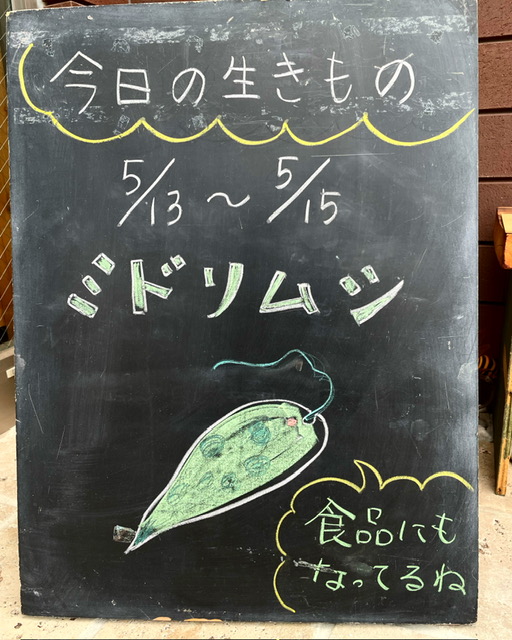 今日の生きもの
5/13～5/15
ミドリムシ
食品にも
なってるね